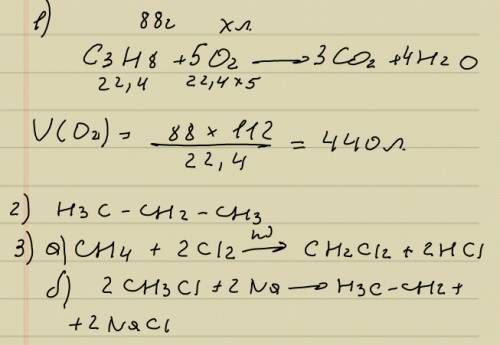 1) 88г х л.
C3H8 + 5O2 → 3CO2 + 4H2O
22,4 22,4*5
V(O2) = 88 * 112 / 22,4 = 440л.
2) H3C - CH2 - CH3
3) а) CH4 + 2Cl2 hν→ CH2Cl2 + 2HCl
б) 2CH3Cl + 2Na → H3C-CH2 +
+ 2NaCl